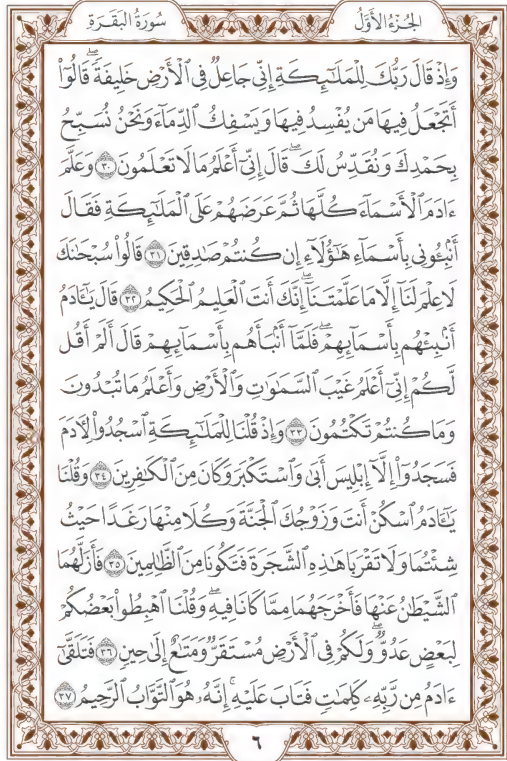 الجُزْءُ الأَوَّلُ سُورَةُ البَقَرَةِ
وَإِذْ قَالَ رَبُّكَ لِلْمَلَٰٓئِكَةِ إِنِّى جَاعِلٌ فِى ٱلْأَرْضِ خَلِيفَةًۖ قَالُوٓا۟
أَتَجْعَلُ فِيهَا مَن يُفْسِدُ فِيهَا وَيَسْفِكُ ٱلدِّمَآءَ وَنَحْنُ نُسَبِّحُ
بِحَمْدِكَ وَنُقَدِّسُ لَكَۖ قَالَ إِنِّىٓ أَعْلَمُ مَا لَا تَعْلَمُونَ ٣٠ وَعَلَّمَ
ءَادَمَ ٱلْأَسْمَآءَ كُلَّهَا ثُمَّ عَرَضَهُمْ عَلَى ٱلْمَلَٰٓئِكَةِ فَقَالَ
أَنۢبِـُٔونِى بِأَسْمَآءِ هَٰٓؤُلَآءِ إِن كُنتُمْ صَٰدِقِينَ ٣١ قَالُوا۟ سُبْحَٰنَكَ
لَا عِلْمَ لَنَآ إِلَّا مَا عَلَّمْتَنَآۖ إِنَّكَ أَنتَ ٱلْعَلِيمُ ٱلْحَكِيمُ ٣٢ قَالَ يَٰٓـَٔادَمُ
أَنۢبِئْهُم بِأَسْمَآئِهِمْۖ فَلَمَّآ أَنۢبَأَهُم بِأَسْمَآئِهِمْ قَالَ أَلَمْ أَقُل
لَّكُمْ إِنِّىٓ أَعْلَمُ غَيْبَ ٱلسَّمَٰوَٰتِ وَٱلْأَرْضِ وَأَعْلَمُ مَا تُبْدُونَ
وَمَا كُنتُمْ تَكْتُمُونَ ٣٣ وَإِذْ قُلْنَا لِلْمَلَٰٓئِكَةِ ٱسْجُدُوا۟ لِءَادَمَ
فَسَجَدُوٓا۟ إِلَّآ إِبْلِيسَ أَبَىٰ وَٱسْتَكْبَرَ وَكَانَ مِنَ ٱلْكَٰفِرِينَ ٣٤ وَقُلْنَا
يَٰٓـَٔادَمُ ٱسْكُنْ أَنتَ وَزَوْجُكَ ٱلْجَنَّةَ وَكُلَا مِنْهَا رَغَدًا حَيْثُ
شِئْتُمَا وَلَا تَقْرَبَا هَٰذِهِ ٱلشَّجَرَةَ فَتَكُونَا مِنَ ٱلظَّٰلِمِينَ ٣٥ فَأَزَلَّهُمَا
ٱلشَّيْطَٰنُ عَنْهَا فَأَخْرَجَهُمَا مِمَّا كَانَا فِيهِۖ وَقُلْنَا ٱهْبِطُوا۟ بَعْضُكُمْ
لِبَعْضٍ عَدُوٌّۖ وَلَكُمْ فِى ٱلْأَرْضِ مُسْتَقَرٌّ وَمَتَٰعٌ إِلَىٰ حِينٍ ٣٦ فَتَلَقَّىٰٓ
ءَادَمُ مِن رَّبِّهِۦ كَلِمَٰتٍ فَتَابَ عَلَيْهِۚ إِنَّهُۥ هُوَ ٱلتَّوَّابُ ٱلرَّحِيمُ ٣٧
٦